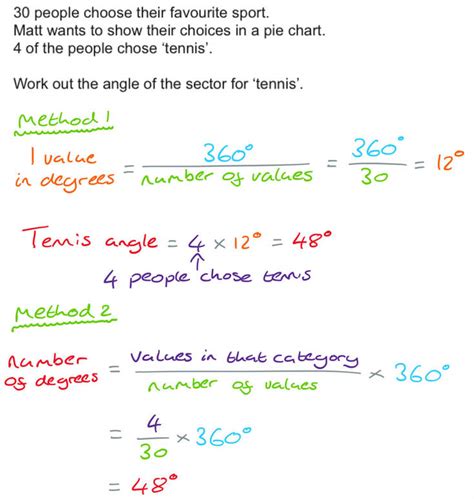 30 people choose their favourite sport.
Matt wants to show their choices in a pie chart.
4 of the people chose ‘tennis’.
Work out the angle of the sector for ‘tennis’.
Method 1
1 value in degrees = 360° / number of values = 360° / 30 = 12°
Tennis angle = 4 × 12° = 48°
↑
4 people chose tennis
Method 2
number of degrees = values in that category / number of values × 360°
= 4 / 30 × 360°
= 48°